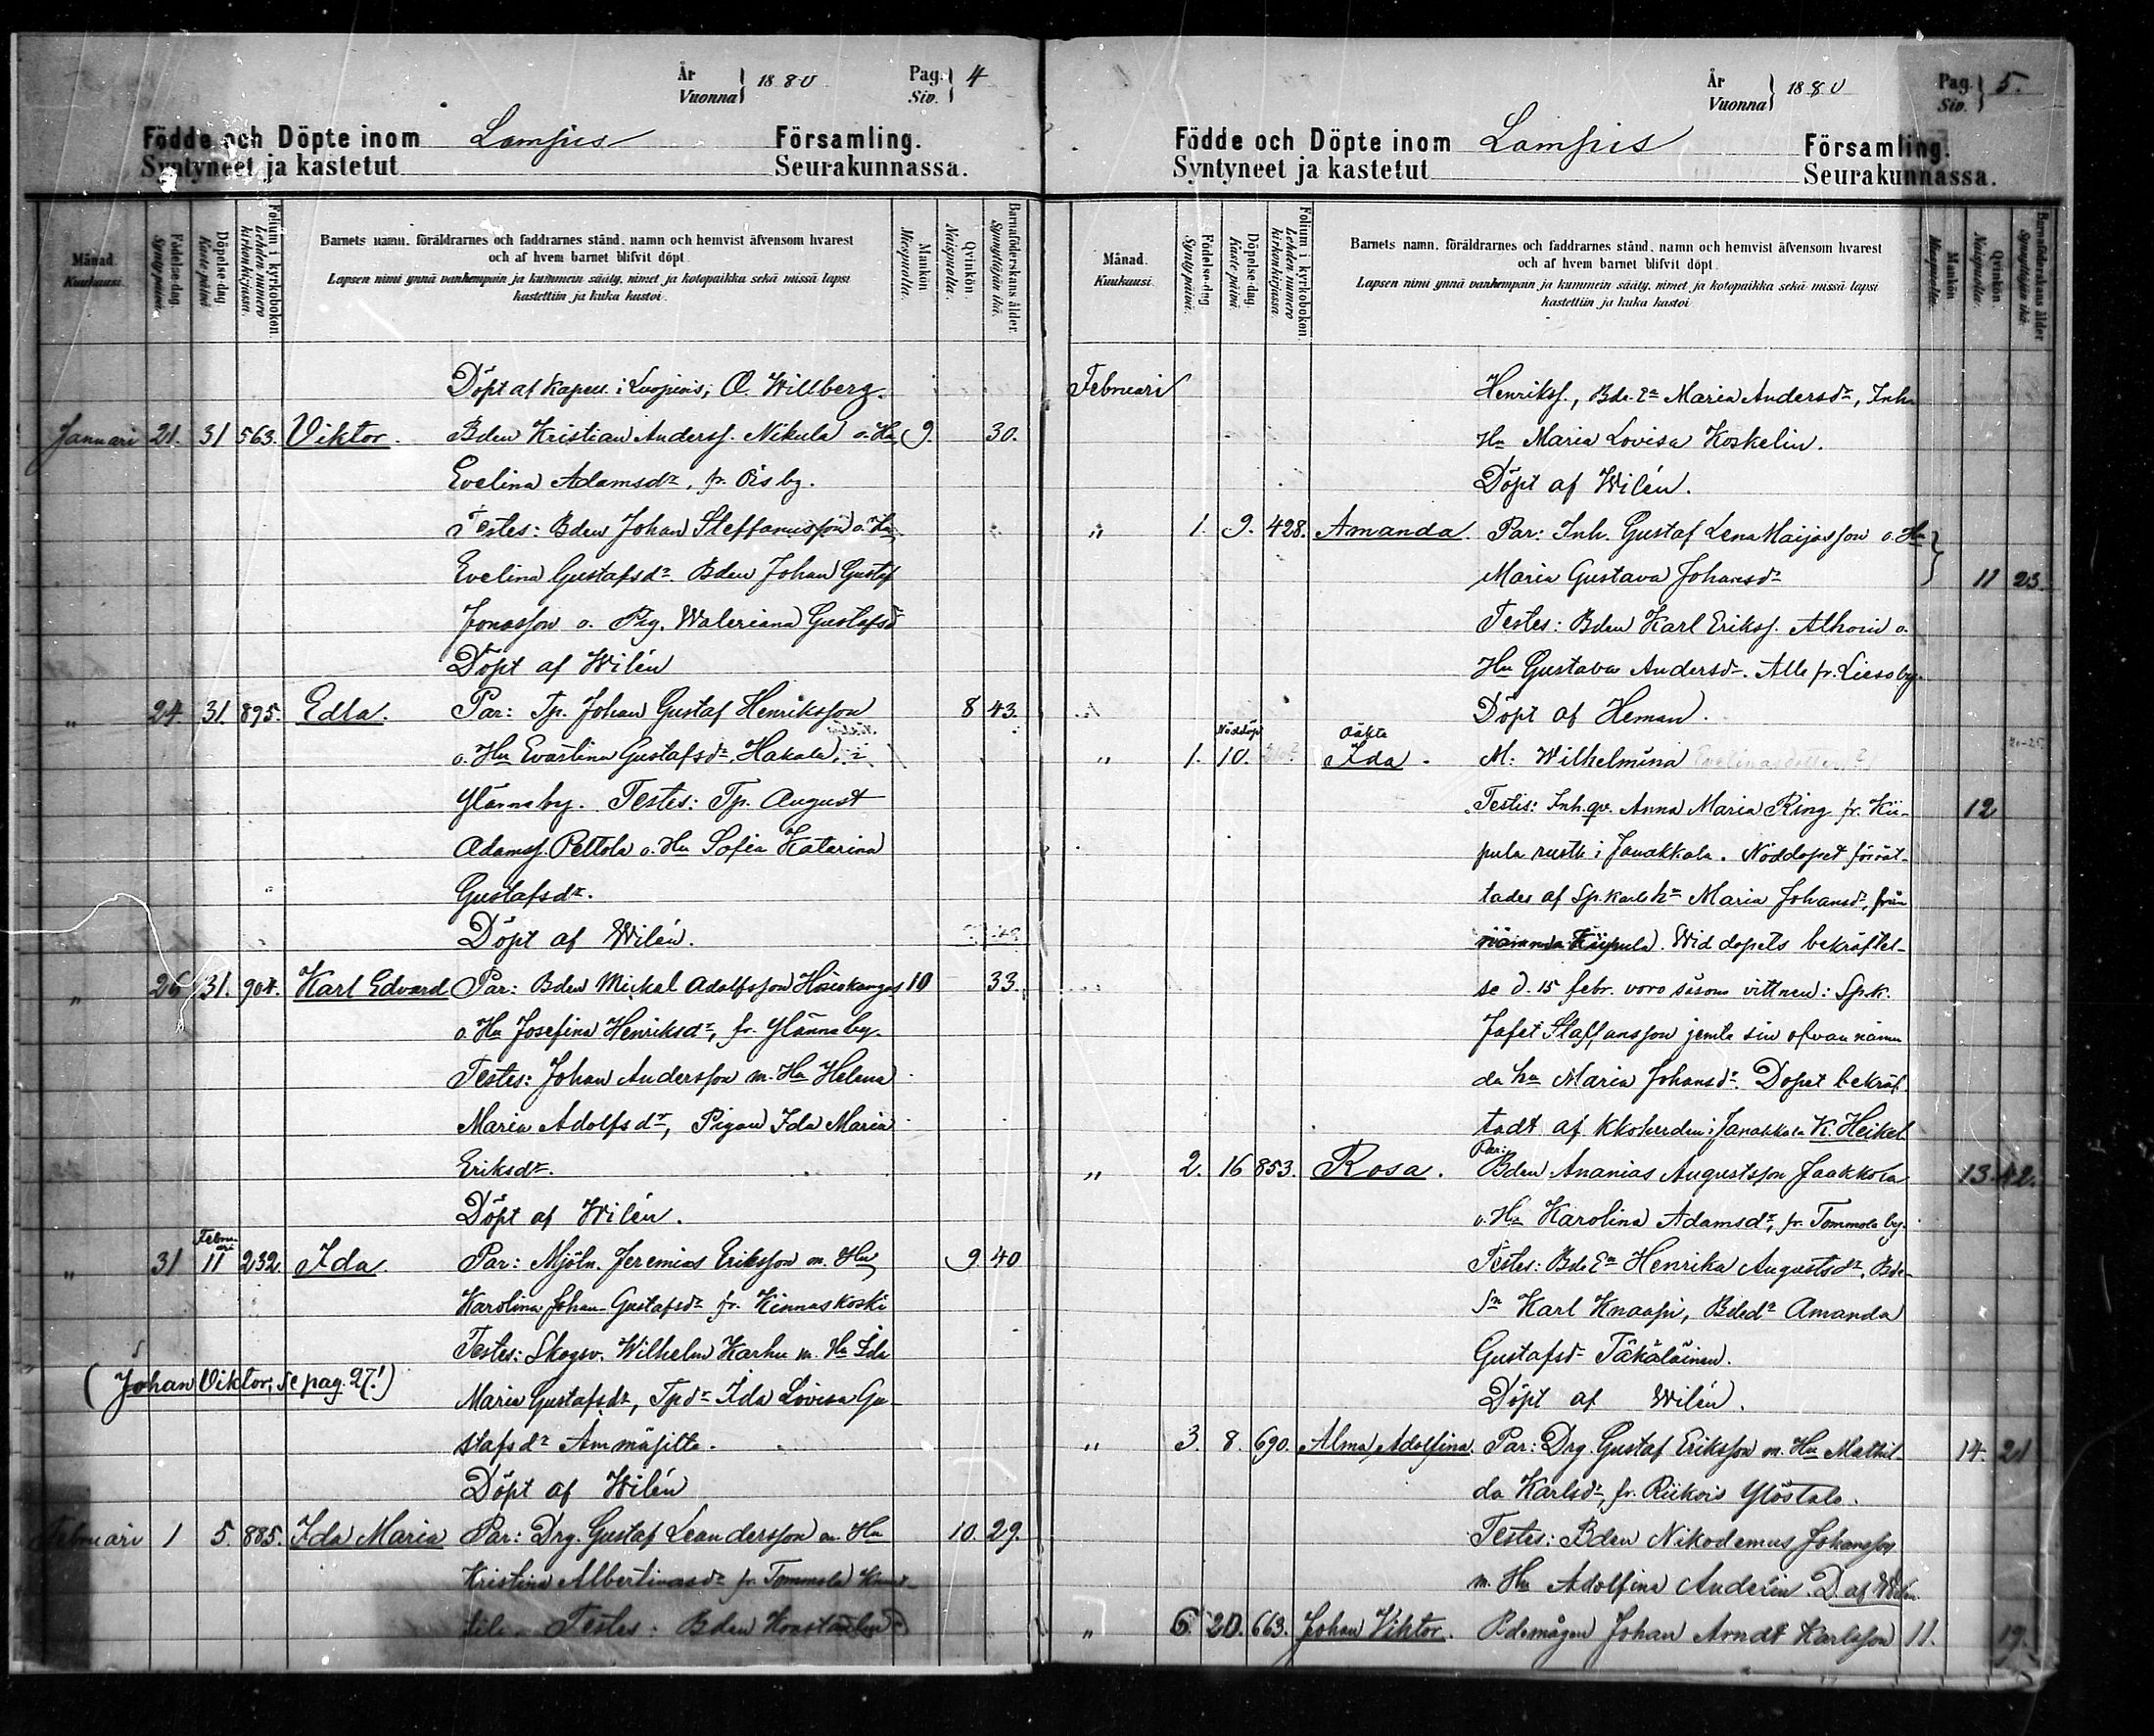 År
Vuonna } 1880
Pag.
Siv. } 4
Födde och Döpte inom Lampis Församling.
Syntyneet ja kastetut Seurakunnassa.
Månad.
Kuukausi.
Födelse-dag.
Syntypäivä.
Döpelse-dag.
Kaste-päivä.
Folium i kyrkoboken.
Lehden numero kirkonkirjassa.
Barnets namn, föräldrarnes och faddrarnes stånd, namn och hemvist äfvensom hvarest
och af hvem barnet blifvit döpt.
Lapsen nimi ynnä vanhempain ja kummein sääty, nimet ja kotopaikka sekä missä lapsi
kastettiin ja kuka kastoi.
Mankön
Miespuolia.
Qvinkön
Naispuolia.
Barnaföderskans ålder.
Synnyttäjän ikä.
Döpt af Kapell. i Luopiois, O. Willberg.
Januari 21. 31 563. Viktor. Bden Kristian Anderss. Nikula o. Hu 9. 30.
Evelina Adamsdr, fr. Ois by.
Testes: Bden Johan Steffanusson o. Hu
Evelina Gustafsdr. Bden Johan Gustaf
Jonasson o. Pig. Waleriana Gustafsd
Döpt af Wilén
„ 24 31. 895. Edla. Par: Tp. Johan Gustaf Henriksson 8 43.
o. Hu Evastina Gustafsdr, Hakala, i
Ylänneby. Testes: Tp. August
Adamss. Peltola o. Hu Sofia Katarina
Gustafsdr.
Döpt af Wilén.
„ 26 31. 904. Karl Edvard Par: Bden Mickal Adolfsson 10 33.
o. Hu Josefina Henriksdr, fr. Ylänne by.
Testes: Johan Andersson m. Hu Helena
Maria Adolfsdr, Pigan Ida Maria
Eriksdr.
Döpt af Wilén.
„ 31 Februari 11 232 Ida. Par: Mjöln. Jeremias Eriksson m. Hu 9 40
Karolina Johan-Gustafsdr fr. Kinnaskoski
Testes: Skogsv. Wilhelm Karhu m. Hu Ida
(Johan Viktor, se pag. 27!)
Maria Gustafsdr, Tpdr Ida Lovisa Gu-
stafsdr Ämmäsilta.
Döpt af Wilén
Februari 1 5. 885. Ida Maria Par: Drg. Gustaf Leandersson m. Hu 10. 29.
Kristina Albertinasdr fr. Tommola
tila. Testes: Bden Konstantin
År
Vuonna } 1880
Pag.
Siv. } 5.
Födde och Döpte inom Lampis Församling.
Syntyneet ja kastetut Seurakunnassa.
Månad.
Kuukausi.
Födelse-dag.
Syntypäivä.
Döpelse-dag.
Kaste-päivä.
Folium i kyrkoboken.
Lehden numero kirkonkirjassa.
Barnets namn, föräldrarnes och faddrarnes stånd, namn och hemvist äfvensom hvarest
och af hvem barnet blifvit döpt.
Lapsen nimi ynnä vanhempain ja kummein sääty, nimet ja kotopaikka sekä missä lapsi
kastettiin ja kuka kastoi.
Mankön
Miespuolia.
Qvinkön
Naispuolia.
Barnaföderskans ålder
Synnyttäjän ikä.
Februari Henrikss., Bde. Ea Maria Andersdr, Inh.
Hu Maria Lovisa Koskelin.
Döpt af Wilén.
„ 1. 9. 428. Amanda. Par: Inh. Gustaf Lena Maijasson o. Hu
Maria Gustava Johansdr 11 23.
Testes: Bden Karl Erikss. Alhoin o.
Hu Gustava Andersdr. Alle fr. Lieso by.
Döpt af Heman.
„ 1. Nöddöpt 10. Oäkta Ida. M: Wilhelmina Evelinasdotter? 20-25
Testis: Inh. qv. Anna Maria Ring fr. Kii- 12
pula rusth. i Janakkala. Nöddopet förrät-
tades af Sp. Karls hu Maria Johansdr, från
nämnda Kiipula. Wid dopets bekräftel-
se d. 15 febr. voro såsom vittnen: Sp.k.
Jafet Staffansson jemte sin ofvan nämn
da hu Maria Johansdr. Dopet bekräf
tadt af Kkoherden i Janakkala K. Heikel.
„ 2. 16 853. Rosa. Par: Bden Ananias Augustsson Jaakkola 13. 42.
o. Hu Karolina Adamsdr, fr. Tommola by.
Testes: Bde Ea Henrika Augustsdr, Bde-
sn Karl Knaapi, Bdedr Amanda
Gustafsdr Täkäläinen.
Döpt af Wilén.
„ 3 8. 690. Alma Adolfina. Par: Drg. Gustaf Eriksson m. Hu Mathil- 14. 21
da Karlsdr, fr. Riikois Ylöstalo.
Testes: Bden Nikodemus Johansson
m. Hu Adolfina Anderin. D. af Wilén.
„ 6. 20. 663. Johan Viktor. Bdemågen Johan Arndt Karlsson 11. 19.